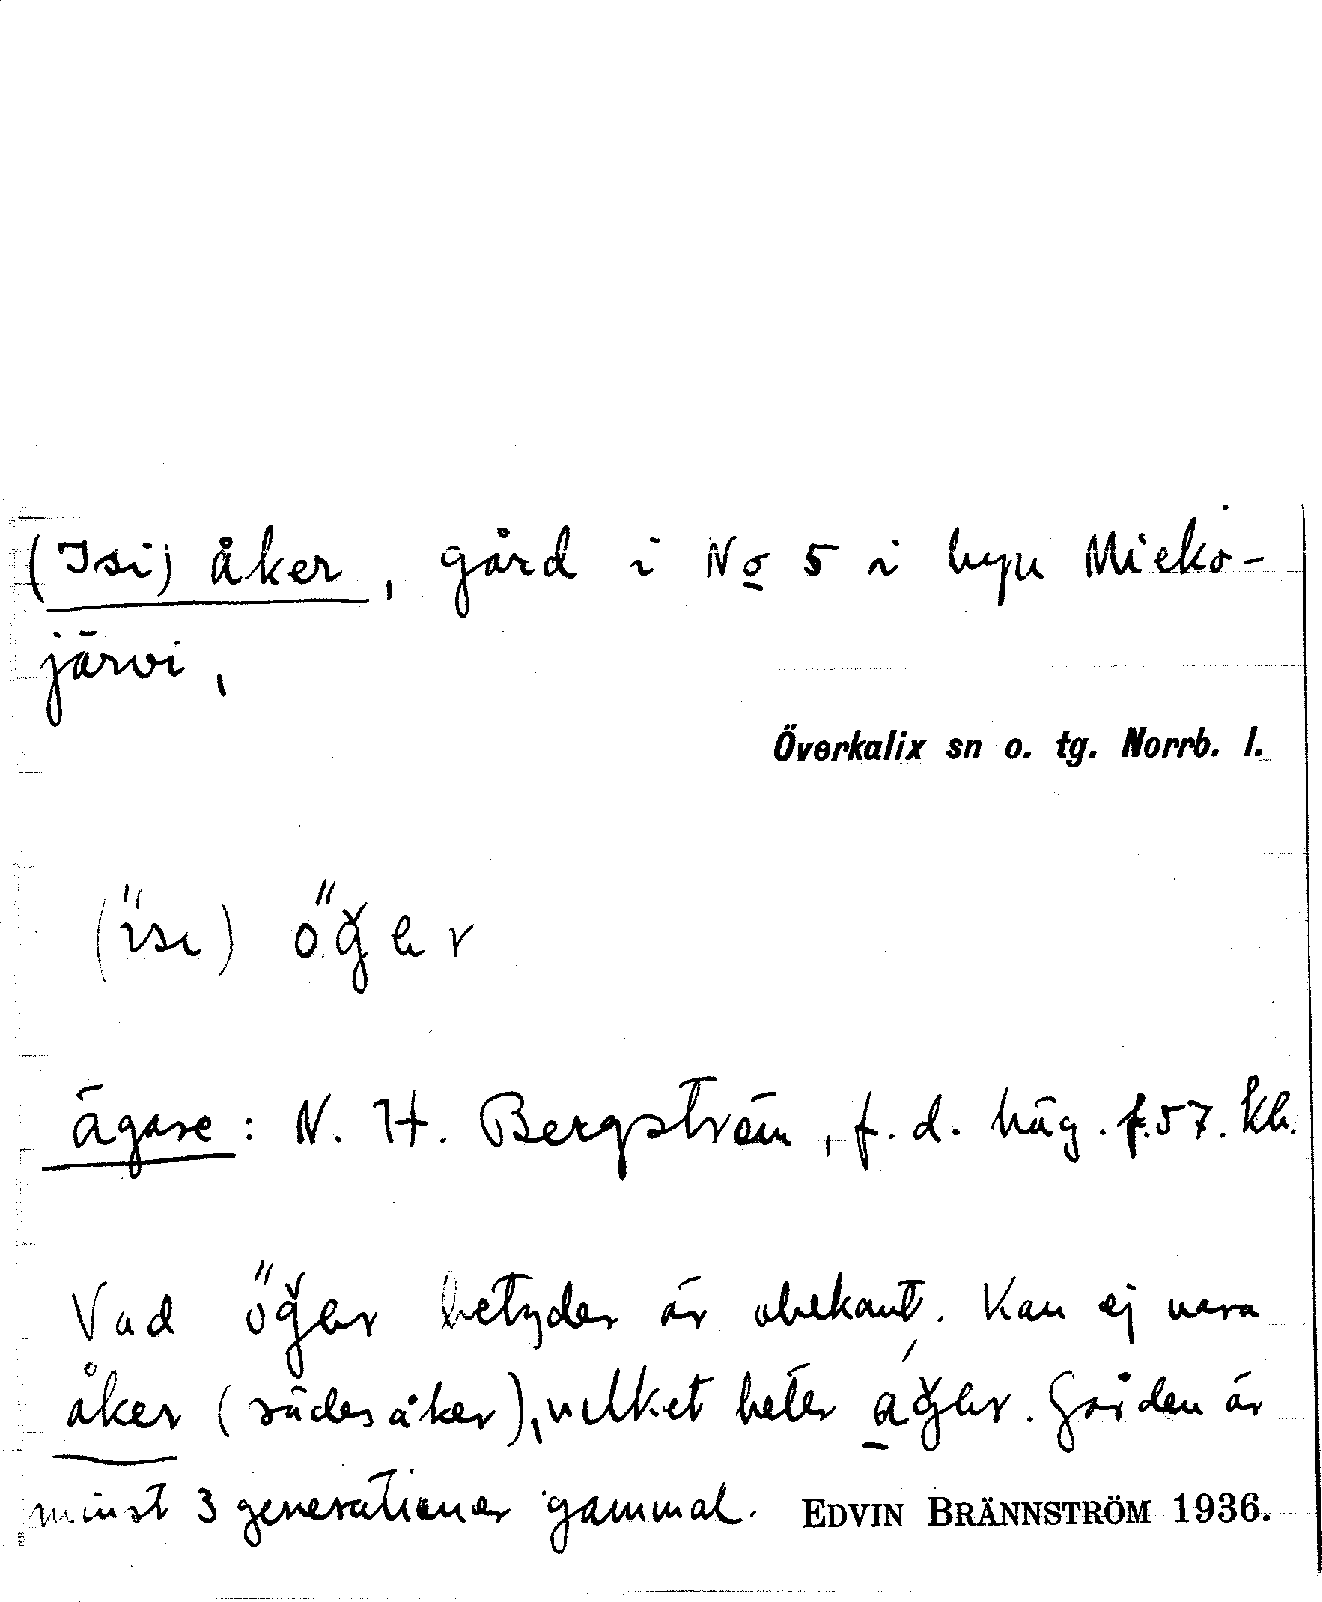 (Isi) åker, gård i No 5 i byn Mieko-
järvi,
Överkalix sn o. tg. Norrb. l.
(isi) öğer
ägare: N. H. Bergström, f. d. häg. f. 57. kh.
Vad öğer betyder är obekant. Kan ej vara
åker (sädesåker), vilket heter ağer. Gården är
minst 3 generationer gammal. EDVIN BRÄNNSTRÖM 1936.